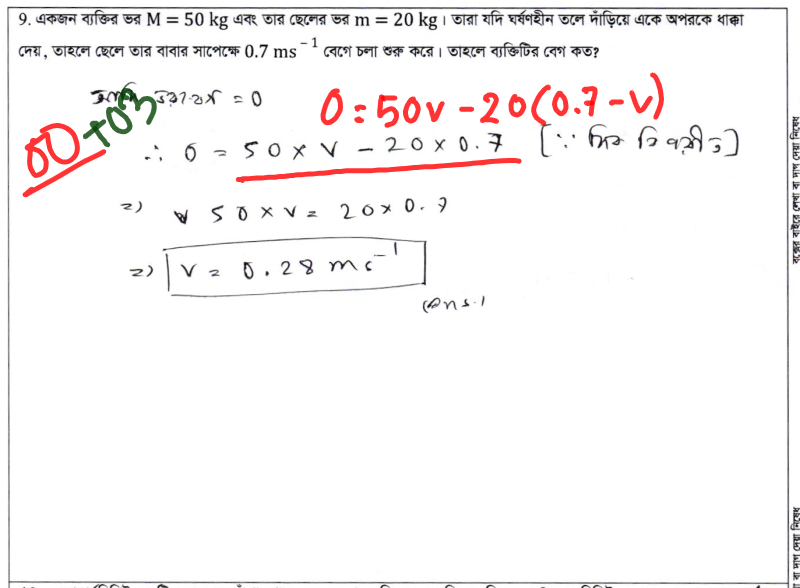 9. একজন ব্যক্তির ভর M = 50 kg এবং তার ছেলের ভর m = 20 kg। তারা যদি ঘর্ষণহীন তলে দাঁড়িয়ে একে অপরকে ধাক্কা
দেয়, তাহলে ছেলে তার বাবার সাপেক্ষে 0.7 ms⁻¹ বেগে চলা শুরু করে। তাহলে ব্যক্তিটির বেগ কত?
= 0
0 = 50v - 20(0.7 - v)
00 +03
∴ 0 = 50 × v - 20 × 0.7 [∵ দিক বিপরীত]
⇒) 50 × v = 20 × 0.7
⇒) v = 0.28 ms⁻¹
(Ans.)
বক্সের বাইরে লেখা বা দাগ দেয়া নিষেধ
বা দাগ দেয়া নিষেধ